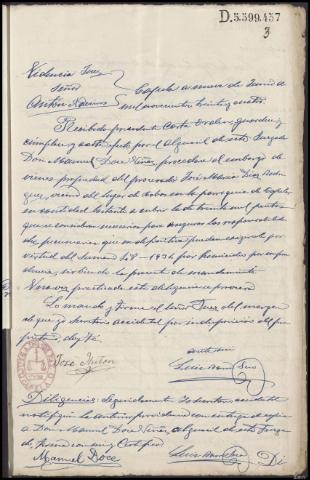 D.5.599.457
3
Providencia Juez
Señor
Antón Ramos
Capela a nueve de Junio de
mil novecientos treinta y cuatro.
Recibida precedente carta orden, guardese y
cumplase y acto seguido por el alguacil de este Juzgado
Don Manuel Doce procedase al embargo de
bienes propiedad del procesado José María Díaz
vecino del lugar de en la parroquia de Capela,
en cantidad bastante a cubrir la de treinta mil pesetas
que se consideran necesarias para asegurar las responsabilida-
des pecuniarias que en definitiva puedan exigirsele por
virtud del sumario 48-1934 por homicidio por impru-
dencia, sirviendo la presente de mandamiento.
Una vez practicada esta diligencia se proveerá
Lo mandó y firma el Señor Juez del margen
de que yo Secretario accidental por indisposición del pro-
pietario, doy fé.
José Antón
Ante mi
Luis
Diligencia: Seguidamente yo Secretario accidental
notifiqué la anterior providencia con entrega de copia
a Don Manuel Doce alguacil de este Juzga-
do, firma conmigo Certifico
Manuel Doce
Luis
Di